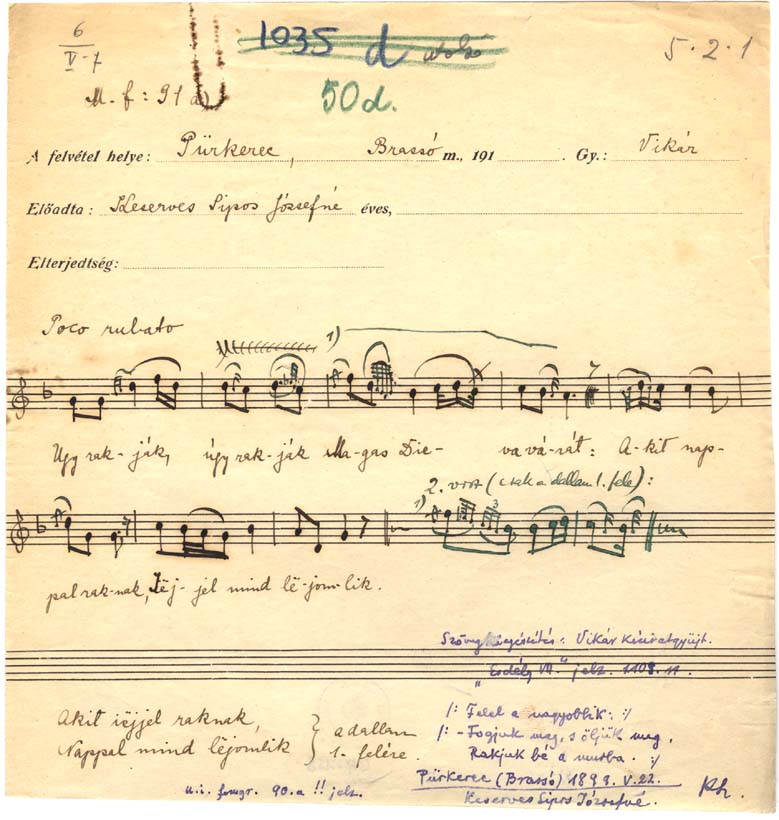 6
V-7
1035 d utolsó
5.2.1
M.f: 91 d)
50d.
A felvétel helye: Pürkerec, Brassó m., 191 . Gy.: Vikár
Előadta: Keserves Sipos Józsefné éves,
Elterjedtség:
Poco rubato
1)
Úgy rak-ják, úgy rak-ják Ma-gas Die- va vá-rát: A-kit nap-
2. vrsz (csak a dallam 1. fele):
1)
3
pal rak-nak, Iëj-jel mind lë-jom-lik.
Szövegkiegészítés: Vikár kéziratgyűjt.
"Erdély VII." jelz. 1109. sz.
Akit iëjjel raknak,
Nappal mind lëjomlik
a dallam
1. felére.
/: Felel a nagyobbik: :/
/: - Fogjuk meg, s öljük meg,
Rakjuk bé a murba. :/
Pürkerec (Brassó) 1899. V.22.
Keserves Sipos Józsefné.
u.i. fonogr. 90.a !! jelz.